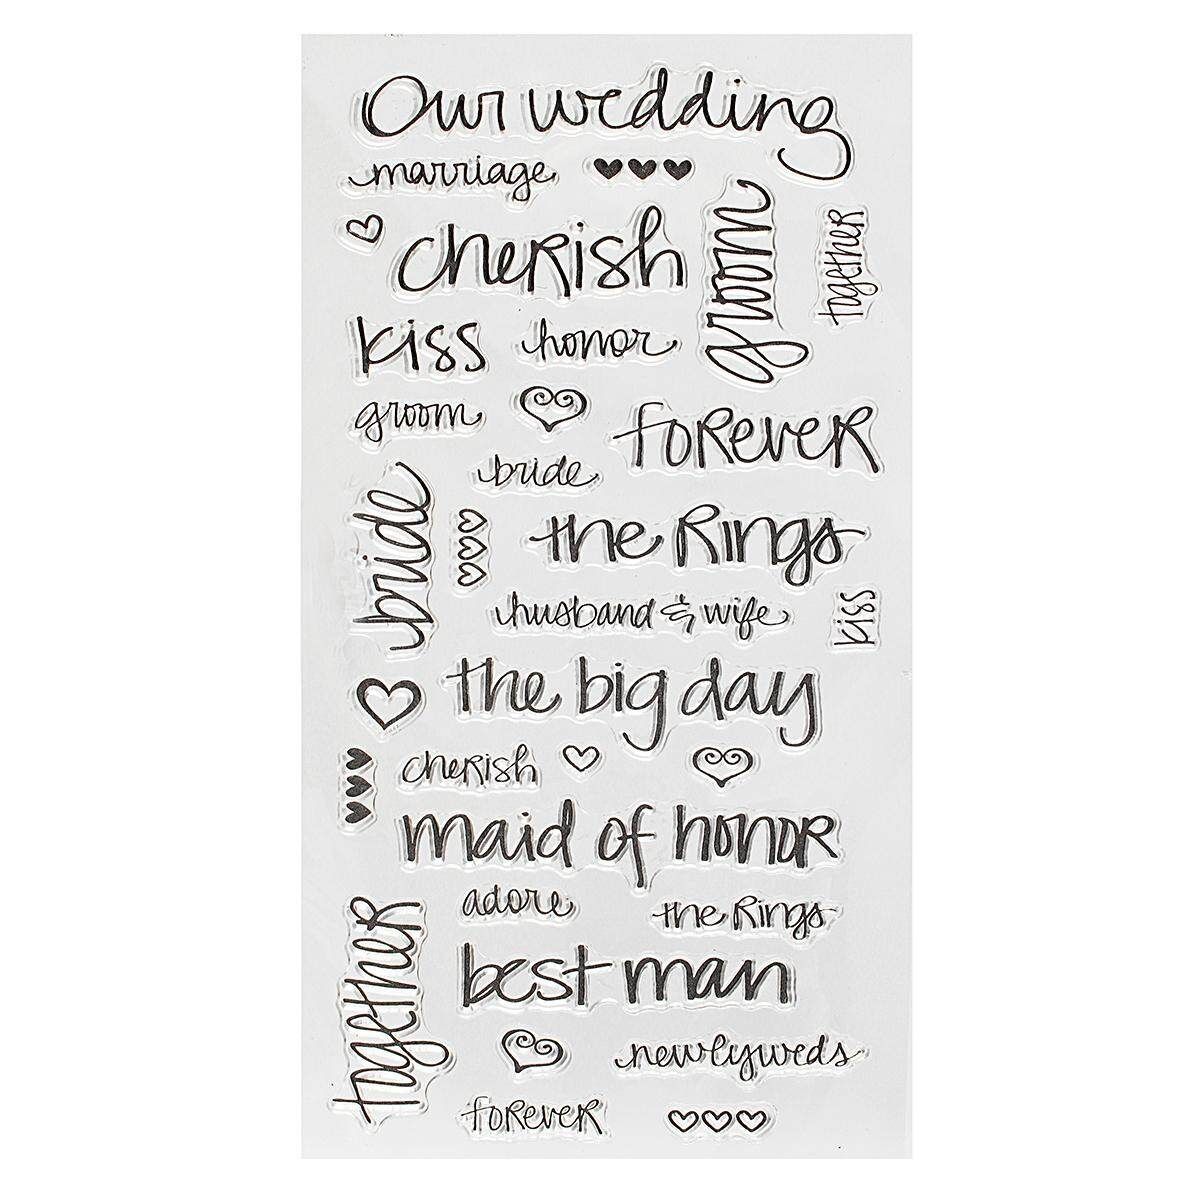 Our wedding
marriage
cherish
groom
together
kiss
honor
groom
forever
bride
bride
the Rings
husband & wife
kiss
the big day
cherish
maid of honor
adore
the Rings
together
best man
newlyweds
forever